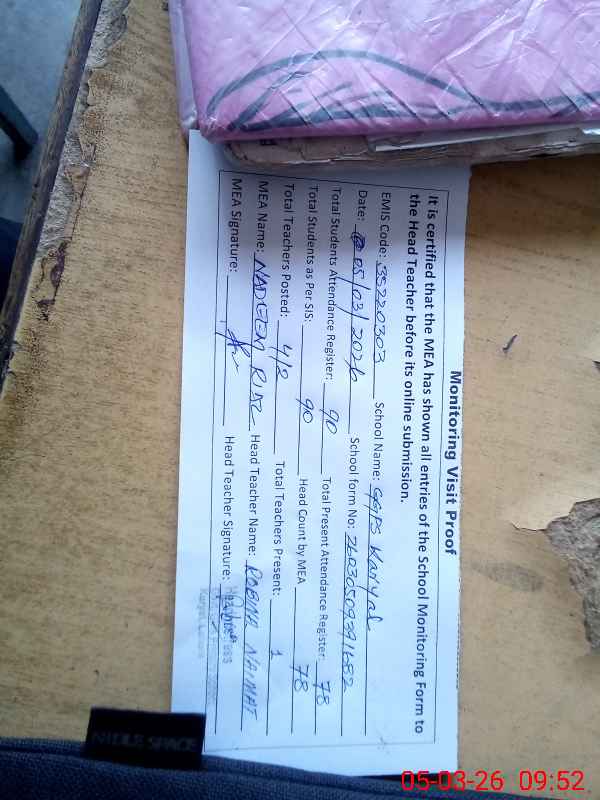 Monitoring Visit Proof
It is certified that the MEA has shown all entries of the School Monitoring Form to
the Head Teacher before its online submission.
EMIS Code: 35220303 School Name: GGPS Kariyal
Date: 05/03/2026 School form No:
Total Students Attendance Register: 90 Total Present Attendance Register: 78
Total Students as Per SIS: 90 Head Count by MEA 78
Total Teachers Posted: 4/2 Total Teachers Present: 1
MEA Name: NADEEM RIAZ Head Teacher Name: ROBINA NAIMAT
MEA Signature: Head Teacher Signature:
05-03-26 09:52